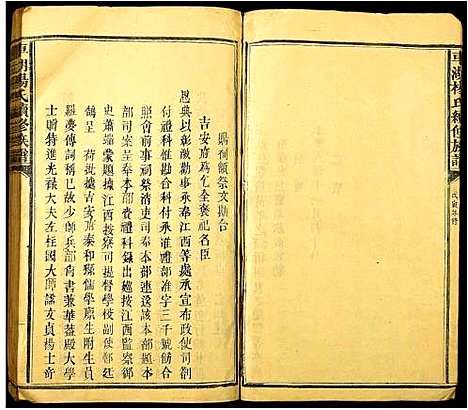 車湖楊氏續修族譜
戊寅年修
賜祠額祭文勘合
吉安府為乞全褒祀名臣
恩典以彰激勸事承奉江西等處承宣布政使司劄
付禮科付承准禮部准字三千號勘合
前事祠祭清吏司奉本部連送該本部題本
部司案呈奉本部禮科錄出巡按江西監察御
史蕭題據江西按察司提督學校副使
鴿呈荷批據吉安府泰和縣儒學廩生附生員
羅等傳詞稱已故少師兵部尚書兼華蓋殿大學
士贈特進光祿大夫左柱國大師謚文貞楊士奇
車湖楊氏續修族譜